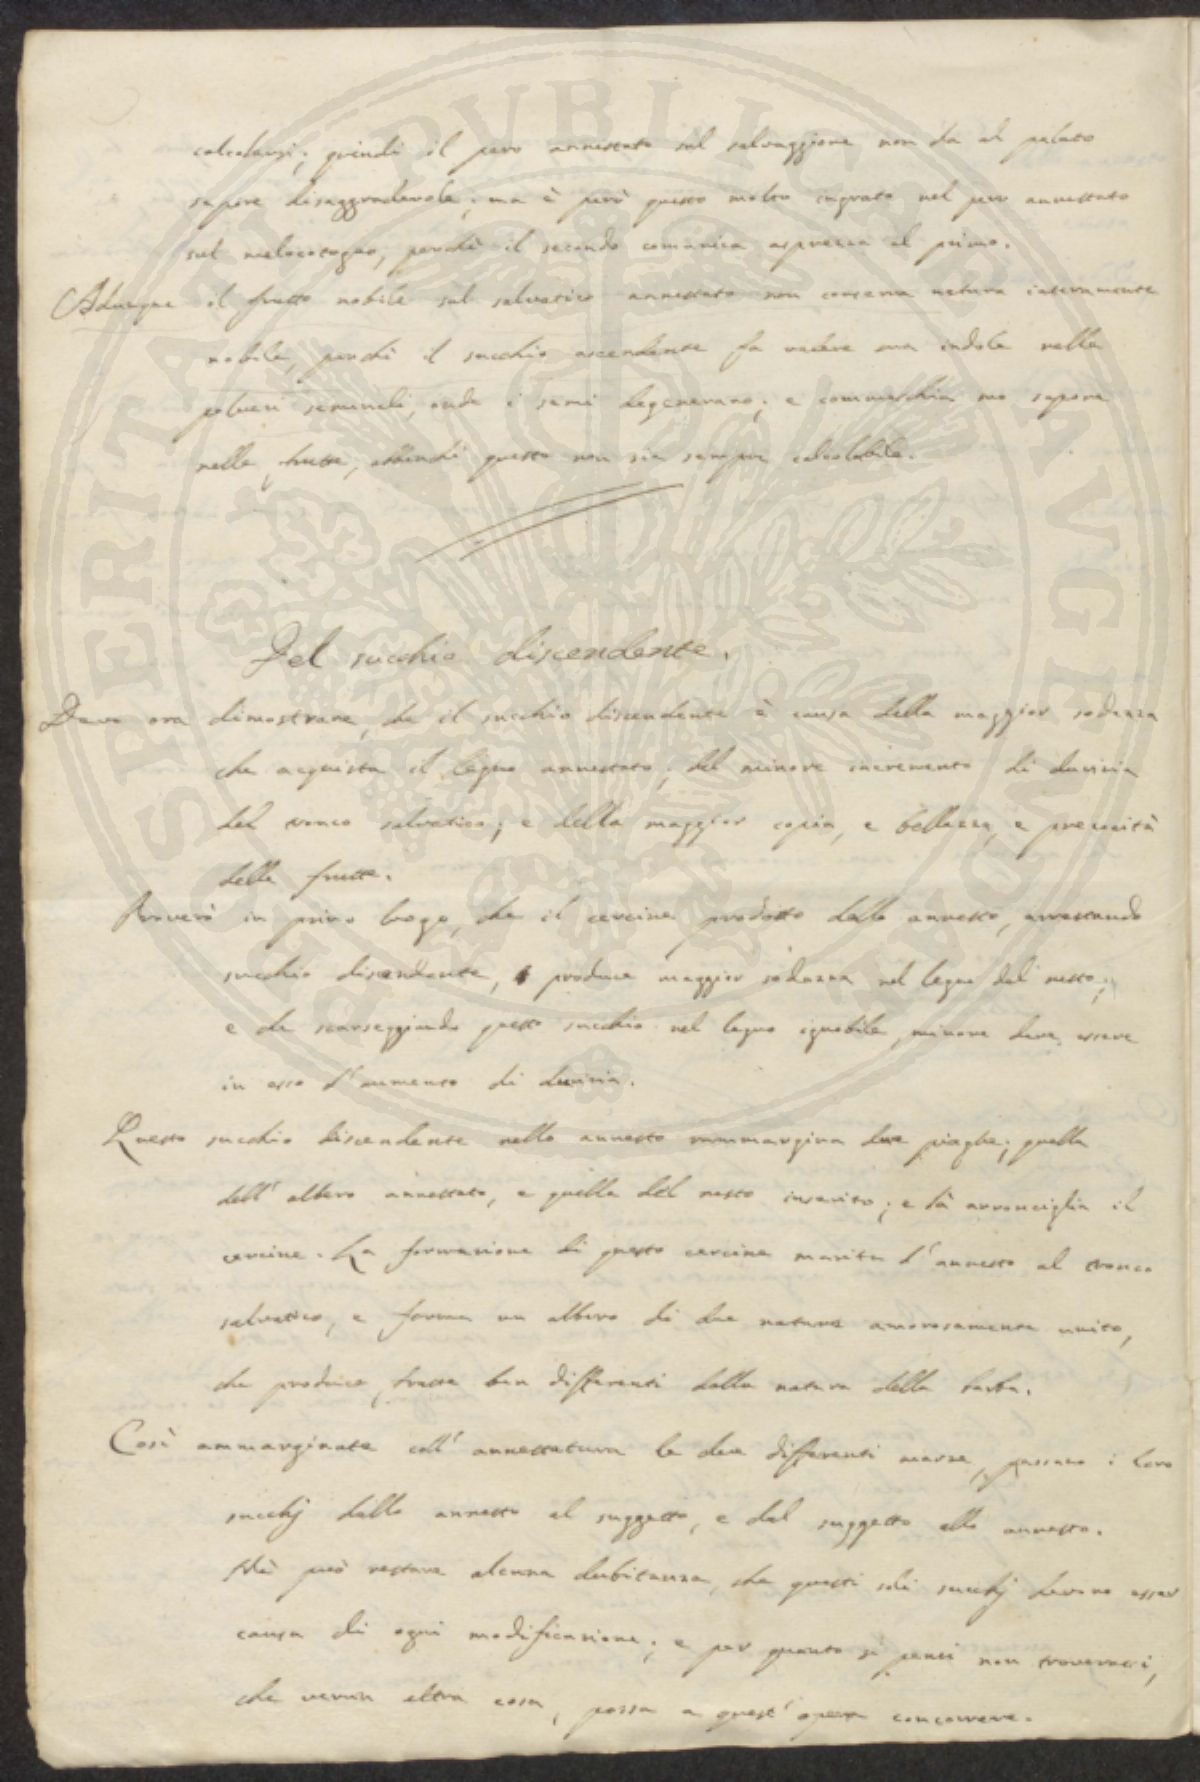 calcolarsi; quindi il pero annestato sul salvaggione non da al palato
sapore disaggradevole; ma è però questo molto ingrato nel pero annestato
sul melocotogno, perchè il secondo comunica asprezza al primo.
Adunque il frutto nobile sul salvatico annestato non conserva natura interamente
nobile, perchè il succhio ascendente fa valere sua indole nelle
polveri seminali, onde i semi degenerano; e commischia suo sapore
nelle frutte, abbenchè questo non sia sempre calcolabile.
Del succhio discendente.
Devo ora dimostrare, che il succhio discendente è causa della maggior sodezza
che acquista il legno annestato; del minore incremento di durizia
del tronco salvatico; e della maggior copia, e bellezza, e precocità
delle frutte.
Proverò in primo luogo, che il cercine prodotto dallo annesto, arrestando
succhio discendente, produce maggior sodezza nel legno del nesto;
e che scarseggiando questo succhio nel legno ignobile, minore deve essere
in esso l'aumento di durizia.
Questo succhio discendente nello annesto rammargina due piaghe; quella
dell'albero annestato, e quella del nesto inserito; e là arronciglia il
cercine. La formazione di questo cercine marita l'annesto al tronco
salvatico, e forma un albero di due nature amorosamente unito,
che produce frutte ben differenti dalla natura della barba.
Così ammarginate coll'annestatura le due differenti marze, passano i loro
succhj dallo annesto al suggetto, e dal suggetto allo annesto.
Nè può restare alcuna dubitanza, che questi soli succhj devono esser
causa di ogni modificazione; e per quanto si pensi non troverassi,
che veruna altra cosa, possa a quest'opera concorrere.